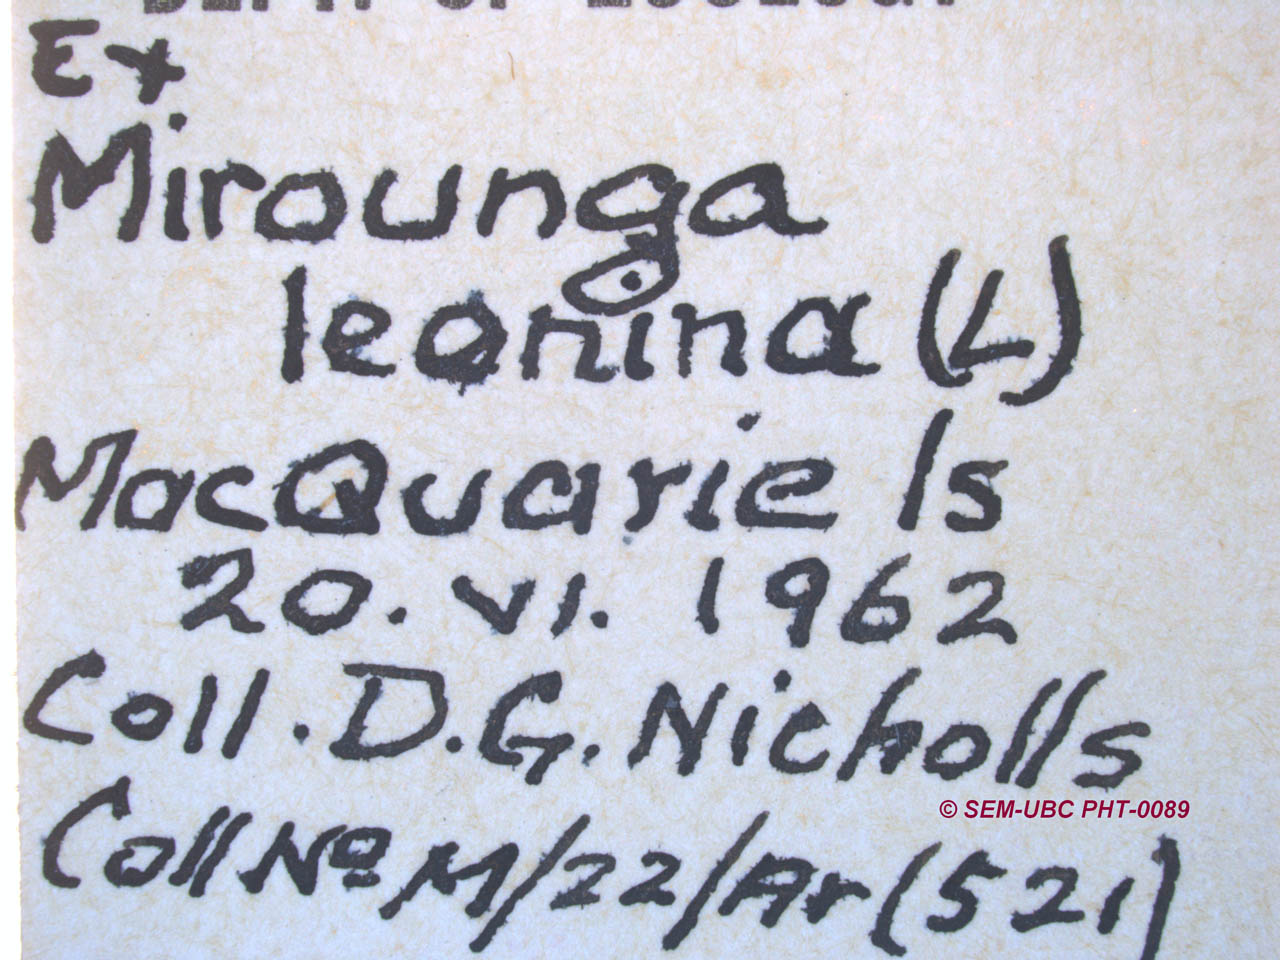 DEPT. OF ZOOLOGY
Ex
Mirounga
leonina (L)
MacQuarie Is
20. VI. 1962
Coll. D.G. Nicholls
© SEM-UBC PHT-0089
Coll Nº M/22/Ar (521)